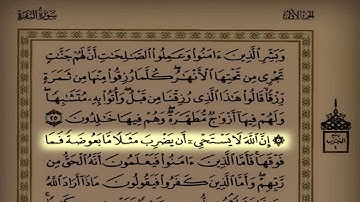 سُورَةُ البَقَرَةِ
الجُزْءُ الأَوَّلُ
وَبَشِّرِ ٱلَّذِينَ ءَامَنُوا۟ وَعَمِلُوا۟ ٱلصَّـٰلِحَـٰتِ أَنَّ لَهُمْ جَنَّـٰتٍ
تَجْرِى مِن تَحْتِهَا ٱلْأَنْهَـٰرُ كُلَّمَا رُزِقُوا۟ مِنْهَا مِن ثَمَرَةٍ
رِّزْقًا قَالُوا۟ هَـٰذَا ٱلَّذِى رُزِقْنَا مِن قَبْلُ وَأُتُوا۟ بِهِۦ مُتَشَـٰبِهًا
وَلَهُمْ فِيهَآ أَزْوَٰجٌ مُّطَهَّرَةٌ وَهُمْ فِيهَا خَـٰلِدُونَ ٢٥
۞ إِنَّ ٱللَّهَ لَا يَسْتَحْىِۦٓ أَن يَضْرِبَ مَثَلًا مَّا بَعُوضَةً فَمَا
فَوْقَهَا فَأَمَّا ٱلَّذِينَ ءَامَنُوا۟ فَيَعْلَمُونَ أَنَّهُ ٱلْحَقُّ مِن
رَّبِّهِمْ وَأَمَّا ٱلَّذِينَ كَفَرُوا۟ فَيَقُولُونَ مَاذَآ أَرَادَ ٱللَّهُ